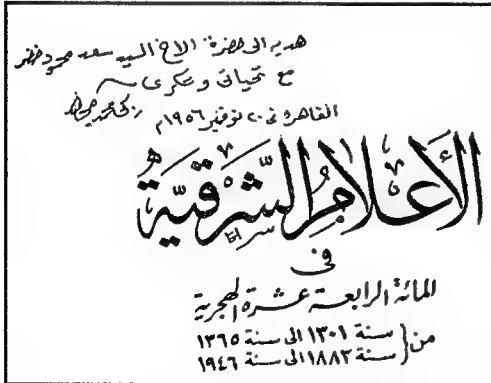 هديه الى حضرة الاخ السيد سعد محمود خضر
مع تحياتى وشكرى
زكى محمد مجاهد
القاهرة فى ٢٠ نوفمبر ١٩٥٦م
الأعلام الشرقية
فى
المائة الرابعة عشرة الهجرية
من سنة ١٣٠١ الى سنة ١٣٦٥
سنة ١٨٨٣ الى سنة ١٩٤٦